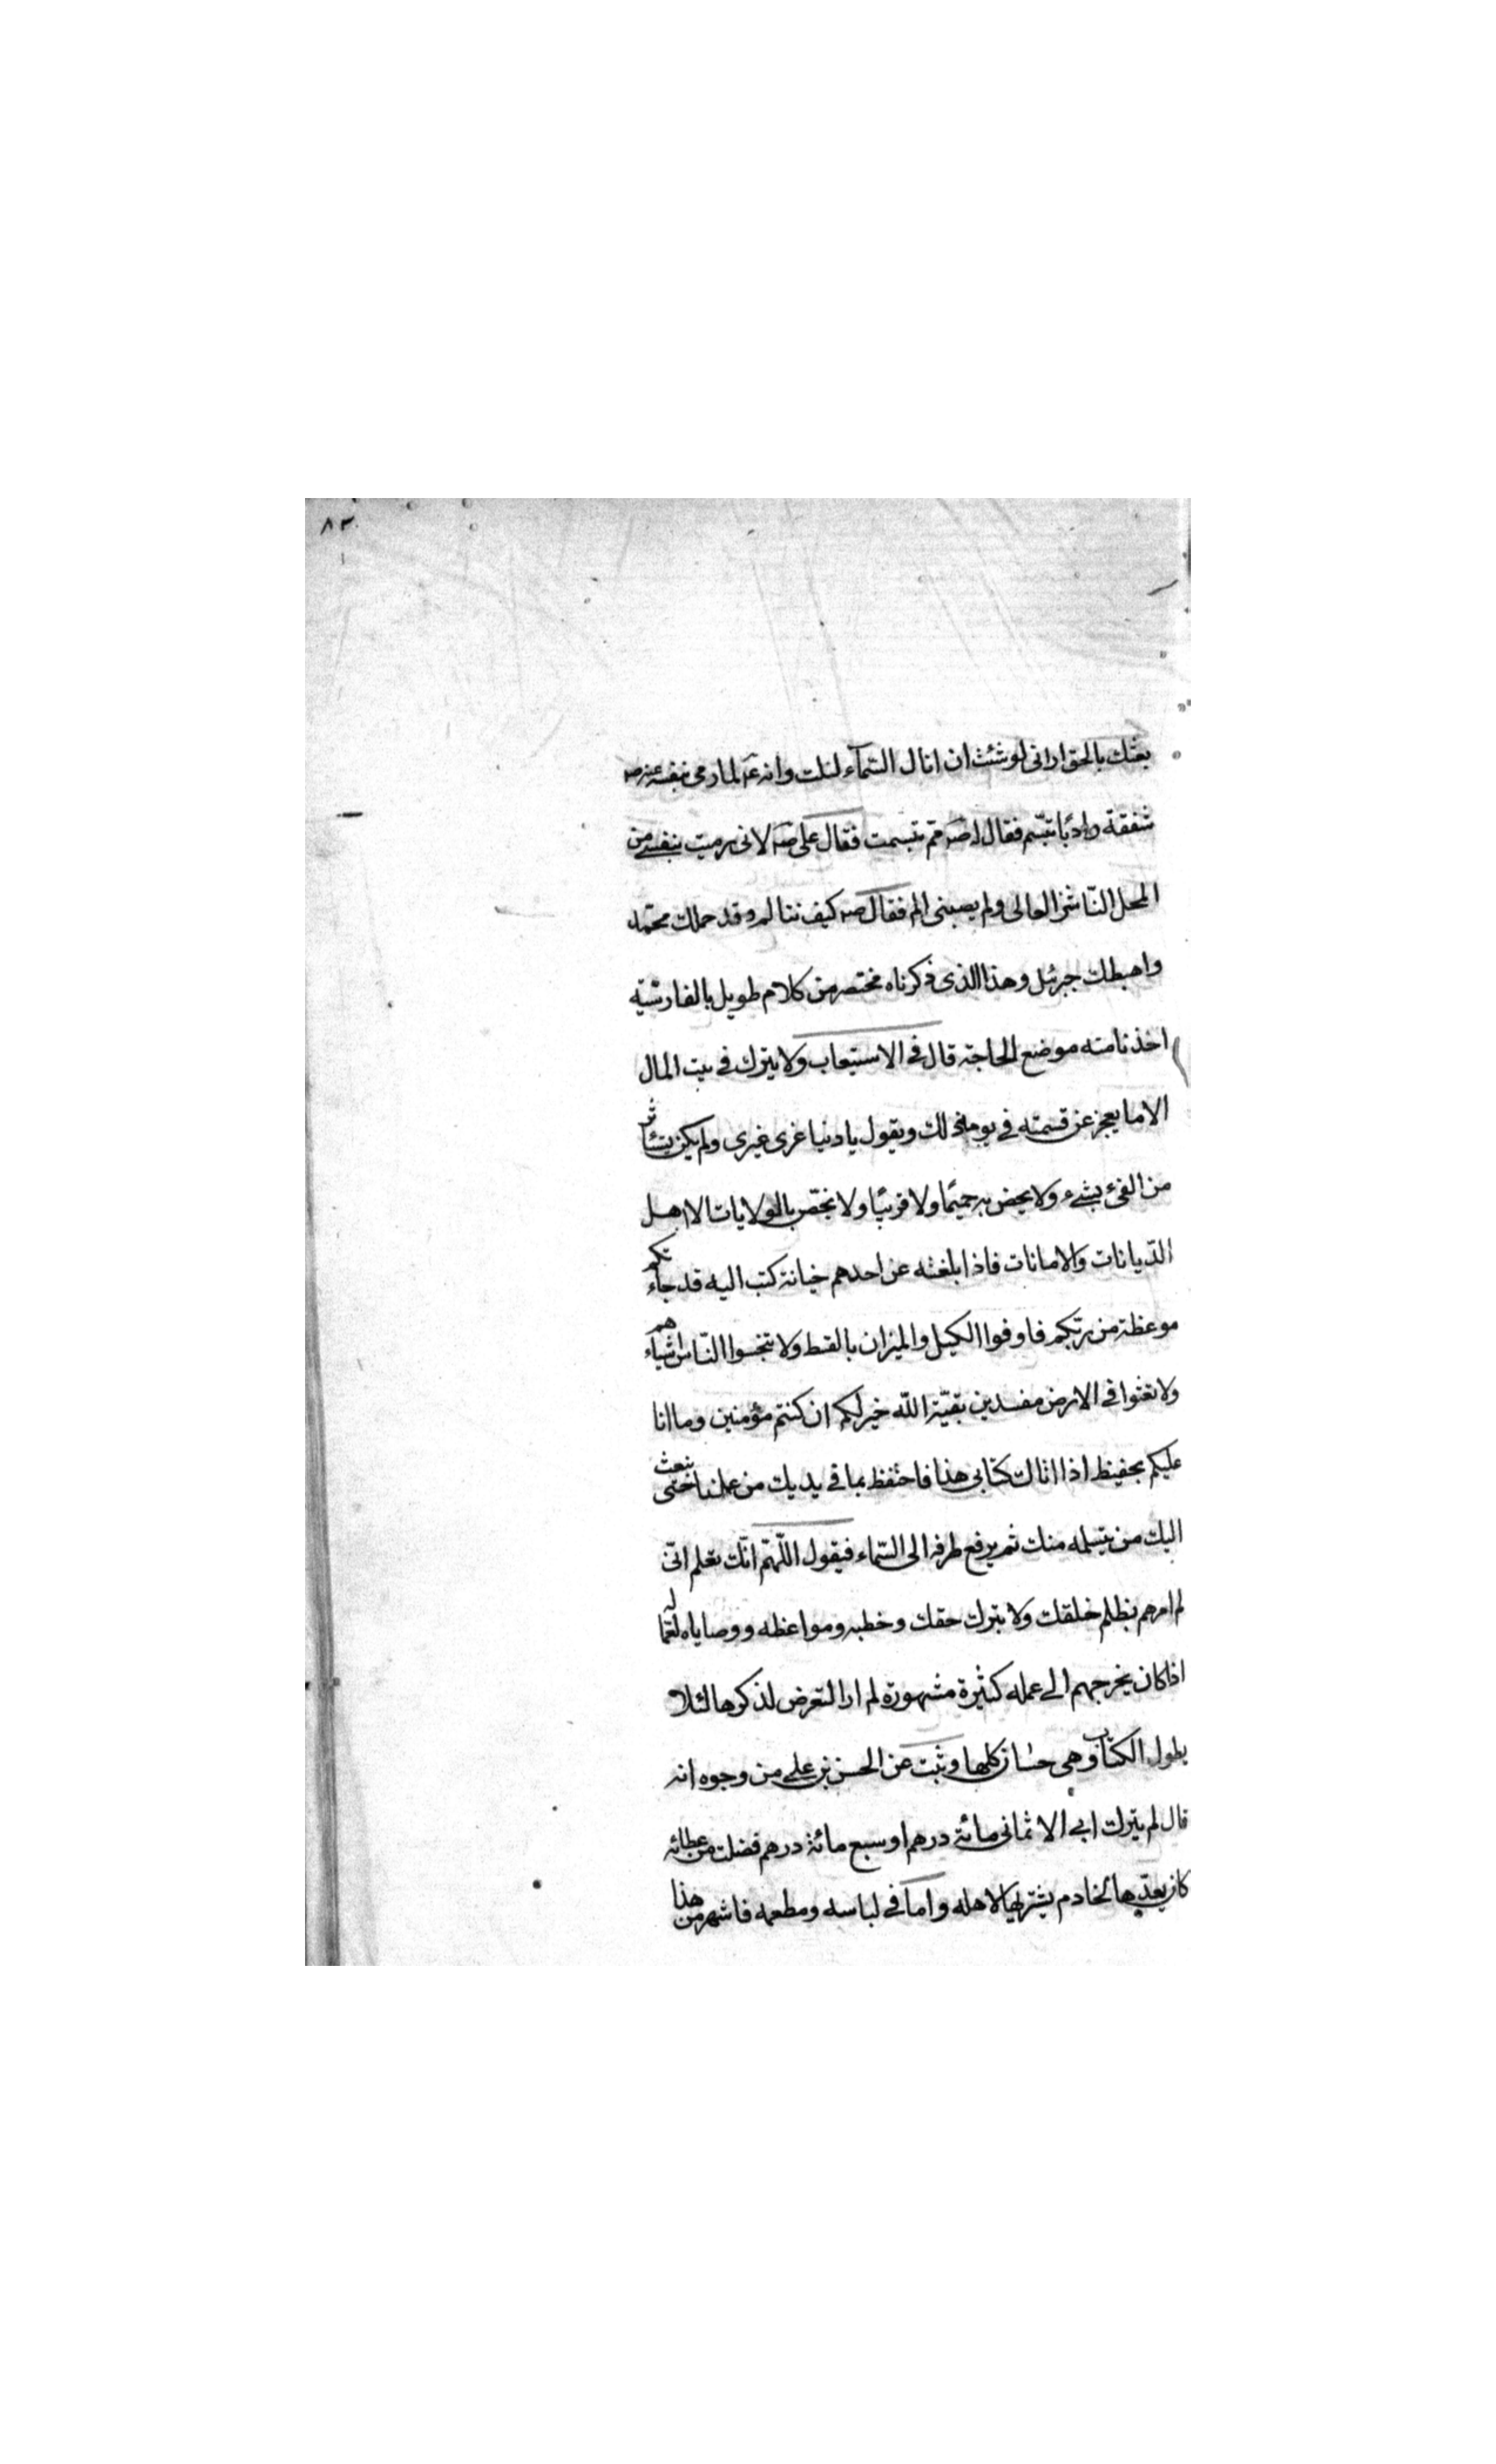 ٨٣
بعثك بالحق ارانى لو شئت ان انال السمآء لنلت وانه ع لما رمى بنفسه عنه ص
شفقة وادبًا تبسّم فقال له ص مم تبسمت فقال على ص لانى رميت بنفسى من
المحل الناشز العالى ولم يصبنى الم فقال ص كيف تتالم وقد حملك محمّد
واهبطك جبرئيل وهذا الذى ذكرناه مختصر من كلام طويل بالفارسيّة
اخذنا منه موضع الحاجة قال فى الاستيعاب ولا يترك فى بيت المال
الا ما يعجز عن قسمته فى يومه ذلك ويقول يا دنيا غرى غيرى ولم يكن يستأثر
من الفىء بشىء ولا يخص به حميمًا ولا قريبًا ولا يخصّ بالولايات الا اهل
الدّيانات والامانات فاذا بلغته عن احدهم خيانة كتب اليه قد جاءتكم
موعظة من ربكم فاوفوا الكيل والميزان بالقسط ولا تبخسوا النّاس اشياءهم
ولا تعثوا فى الارض مفسدين بقيّة اللّه خير لكم ان كنتم مؤمنين وما انا
عليكم بحفيظ اذا اتاك كتابى هذا فاحتفظ بما فى يديك من عملنا حتى نبعث
اليك من يتسلمه منك ثم يرفع طرفه الى السّماء فيقول اللّهمّ انّك تعلم انّى
لم امرهم بظلم خلقك ولا بترك حقك وخطبه ومواعظه ووصاياه لعماله
اذا كان يخرجهم الى عمله كثيرة مشهورة لم ار التعرض لذكرها لئلا
يطول الكتاب وهى حسان كلها وثبت عن الحسن بن على من وجوه انه
قال لم يترك ابى الا ثمانى مائة درهم او سبع مائة درهم فضلت من عطائه
كان يعدّها لخادم يشتريها لاهله واما فى لباسه ومطعمه فاشهر من هذا